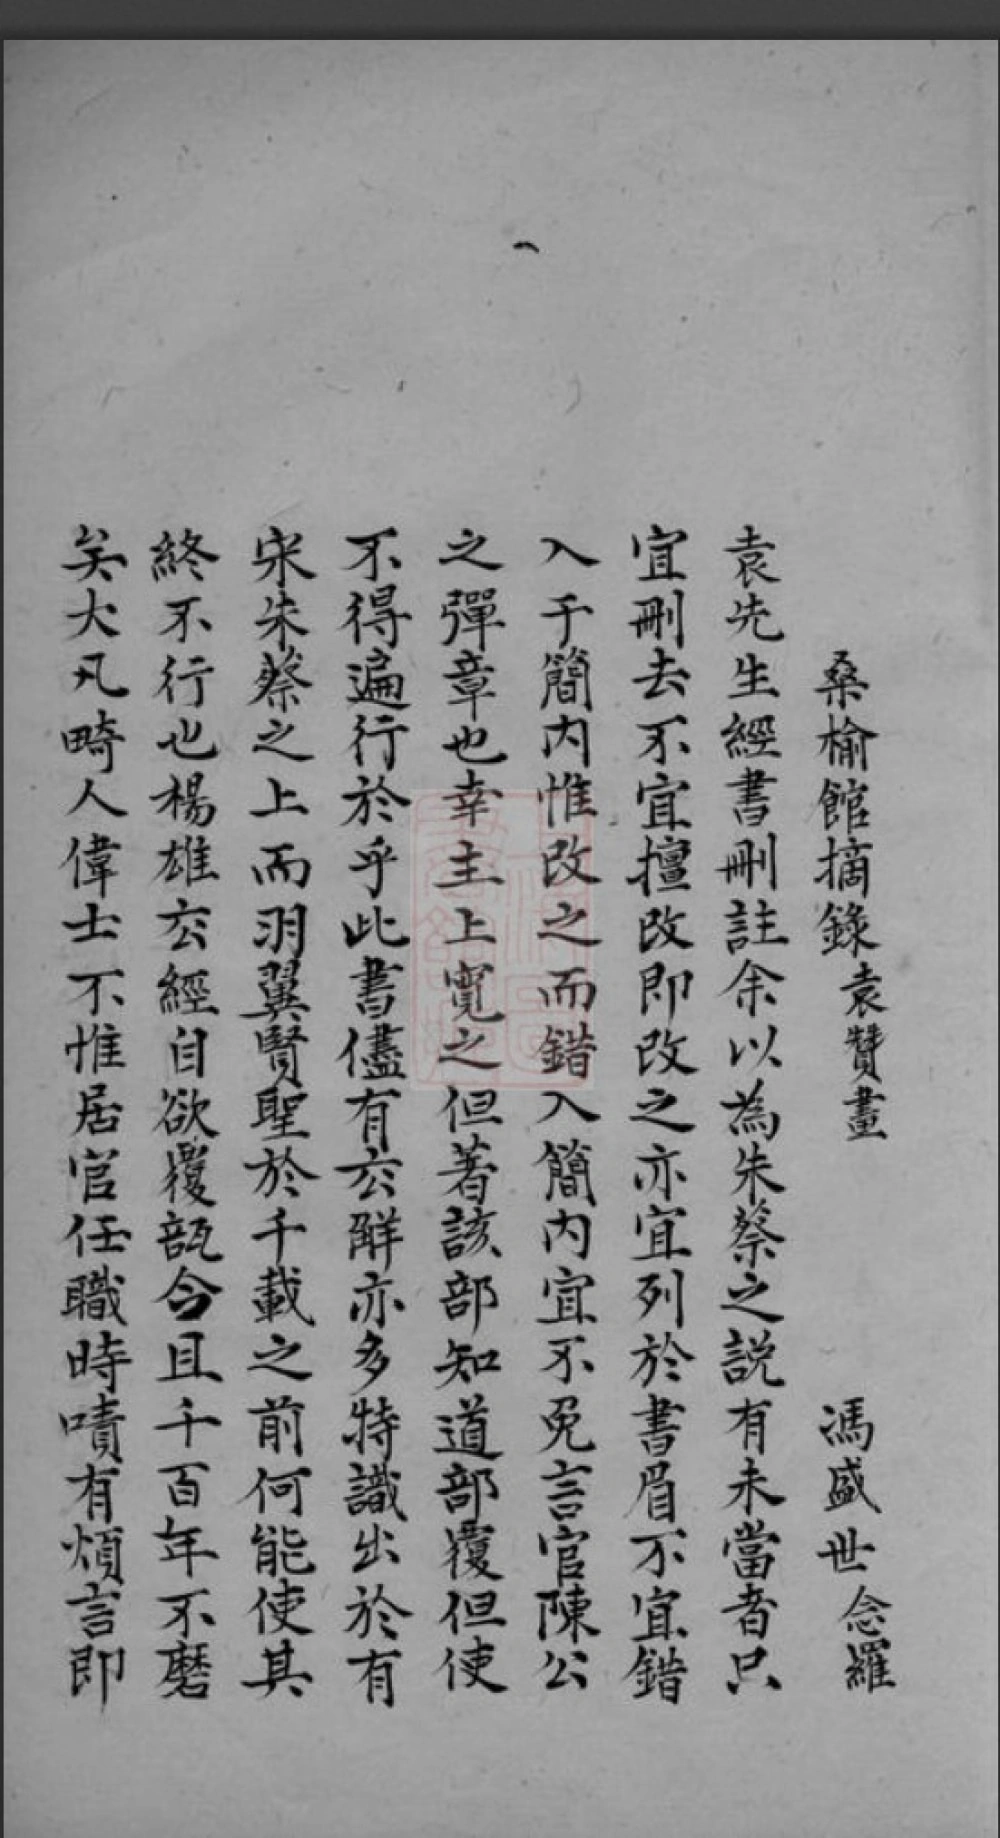 桑榆館摘錄袁贊畫 馮盛世念羅
袁先生經書刪註余以為朱蔡之説有未當者只
宜刪去不宜擅改即改之亦宜列於書眉不宜錯
入于簡內惟改之而錯入簡內宜不免言官陳公
之彈章也幸主上寬之但著該部知道部覆但使
不得遍行於乎此書儘有玄解亦多特識出於有
宋朱蔡之上而羽翼賢聖於千載之前何能使其
終不行也楊雄玄經自欲覆瓿今且千百年不磨
矣大凡畸人偉士不惟居官任職時嘖有煩言即